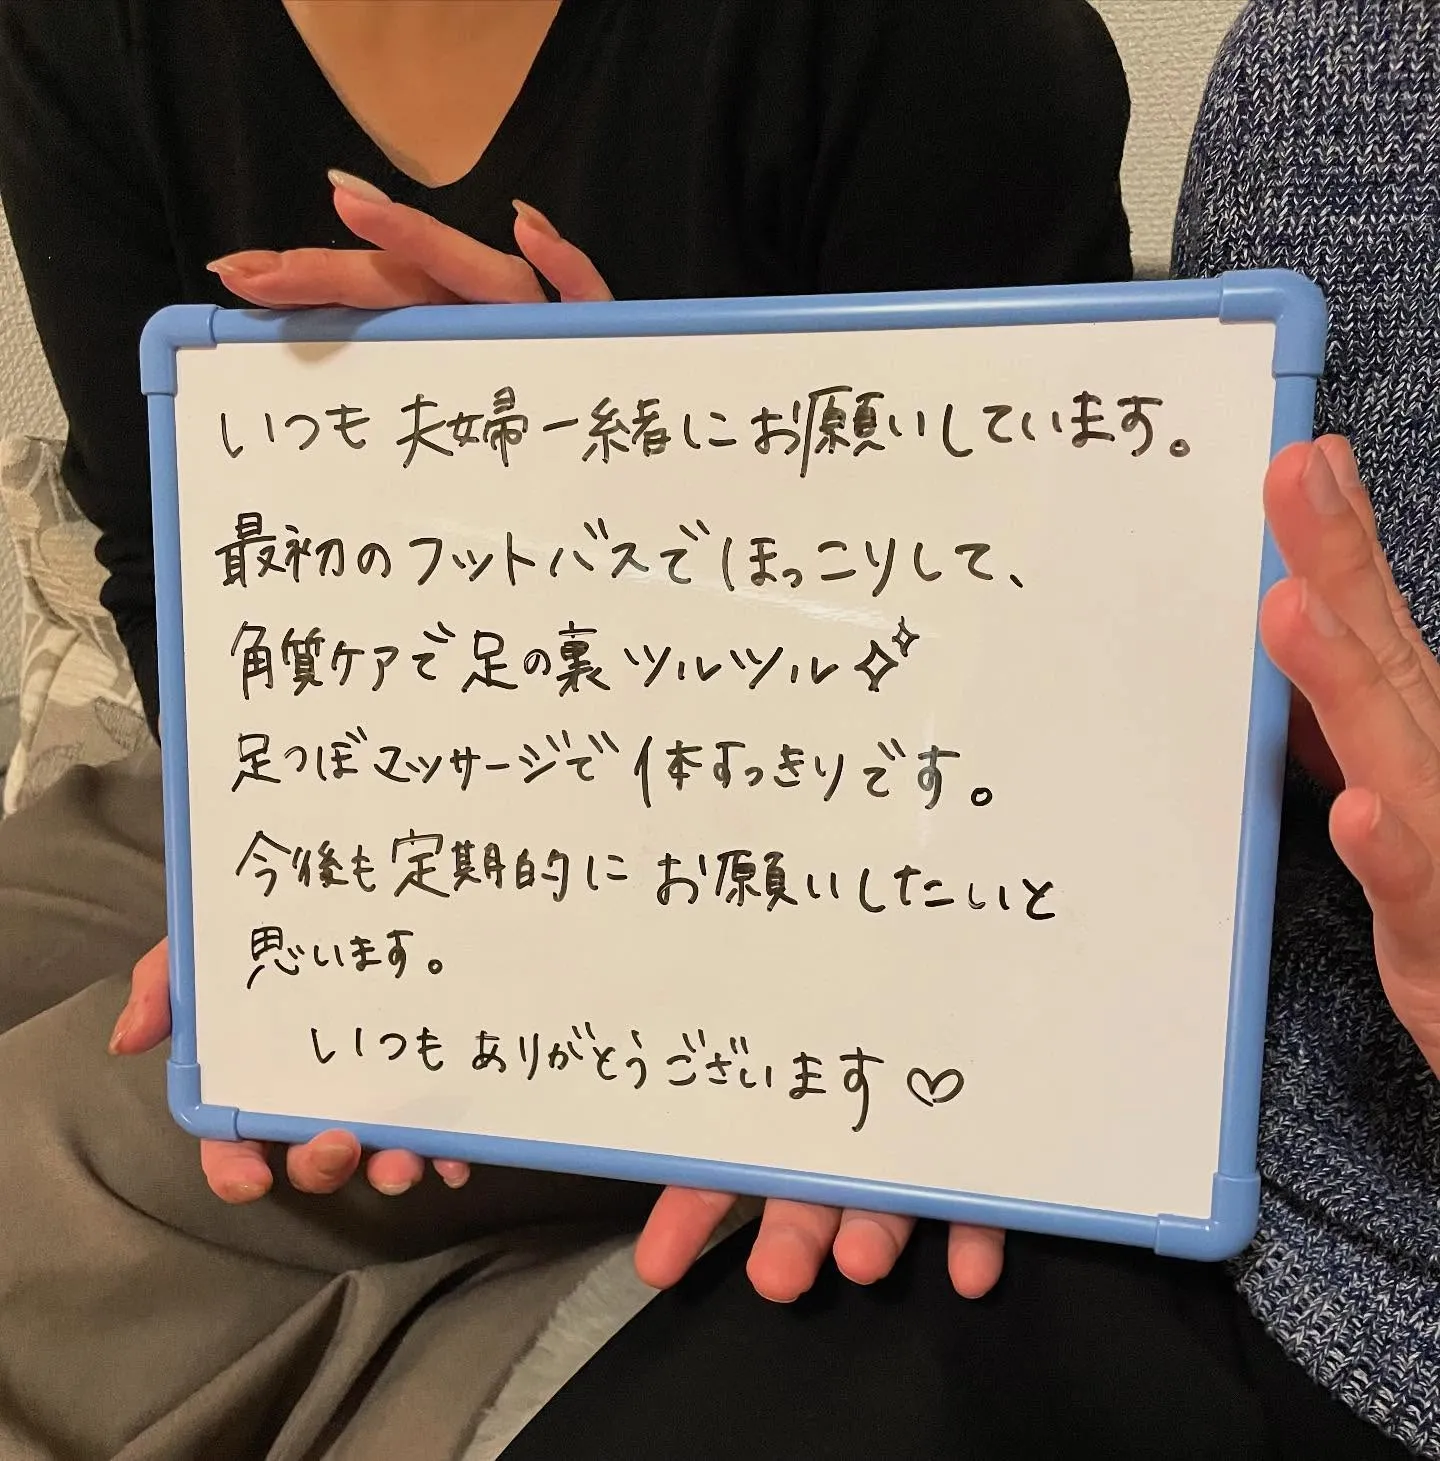 いつも夫婦一緒にお願いしています。
最初のフットバスでほっこりして、
角質ケアで足の裏ツルツル✨
足つぼマッサージで体すっきりです。
今後も定期的にお願いしたいと
思います。
いつもありがとうございます♡